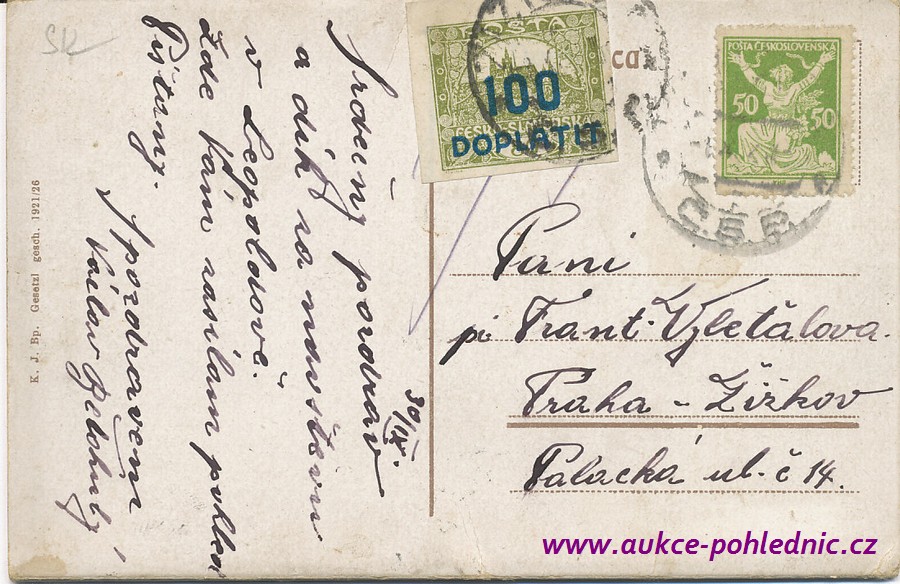 SK
Srdečný pozdrav
a dík za navštevu
v Leopoldově.
Zde Vám zasílám pohled
Píšťany. S pozdravem
Václav
30/IX.
K. J. Bp. Gesetzl gesch. 1921/26
POŠTA
100
DOPLATIT
ČESKOSLOVENSKÁ
POŠTA ČESKOSLOVENSKÁ
50 50
Č.S.P.
Paní
pí Frant. Vyletálova.
Praha - Žižkov
Palacká ul. č 14.
www.aukce-pohlednic.cz